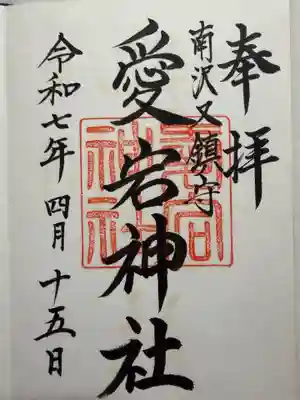 奉拝
南沢又鎮守
愛宕神社
愛宕神社
令和七年 四月 十五日